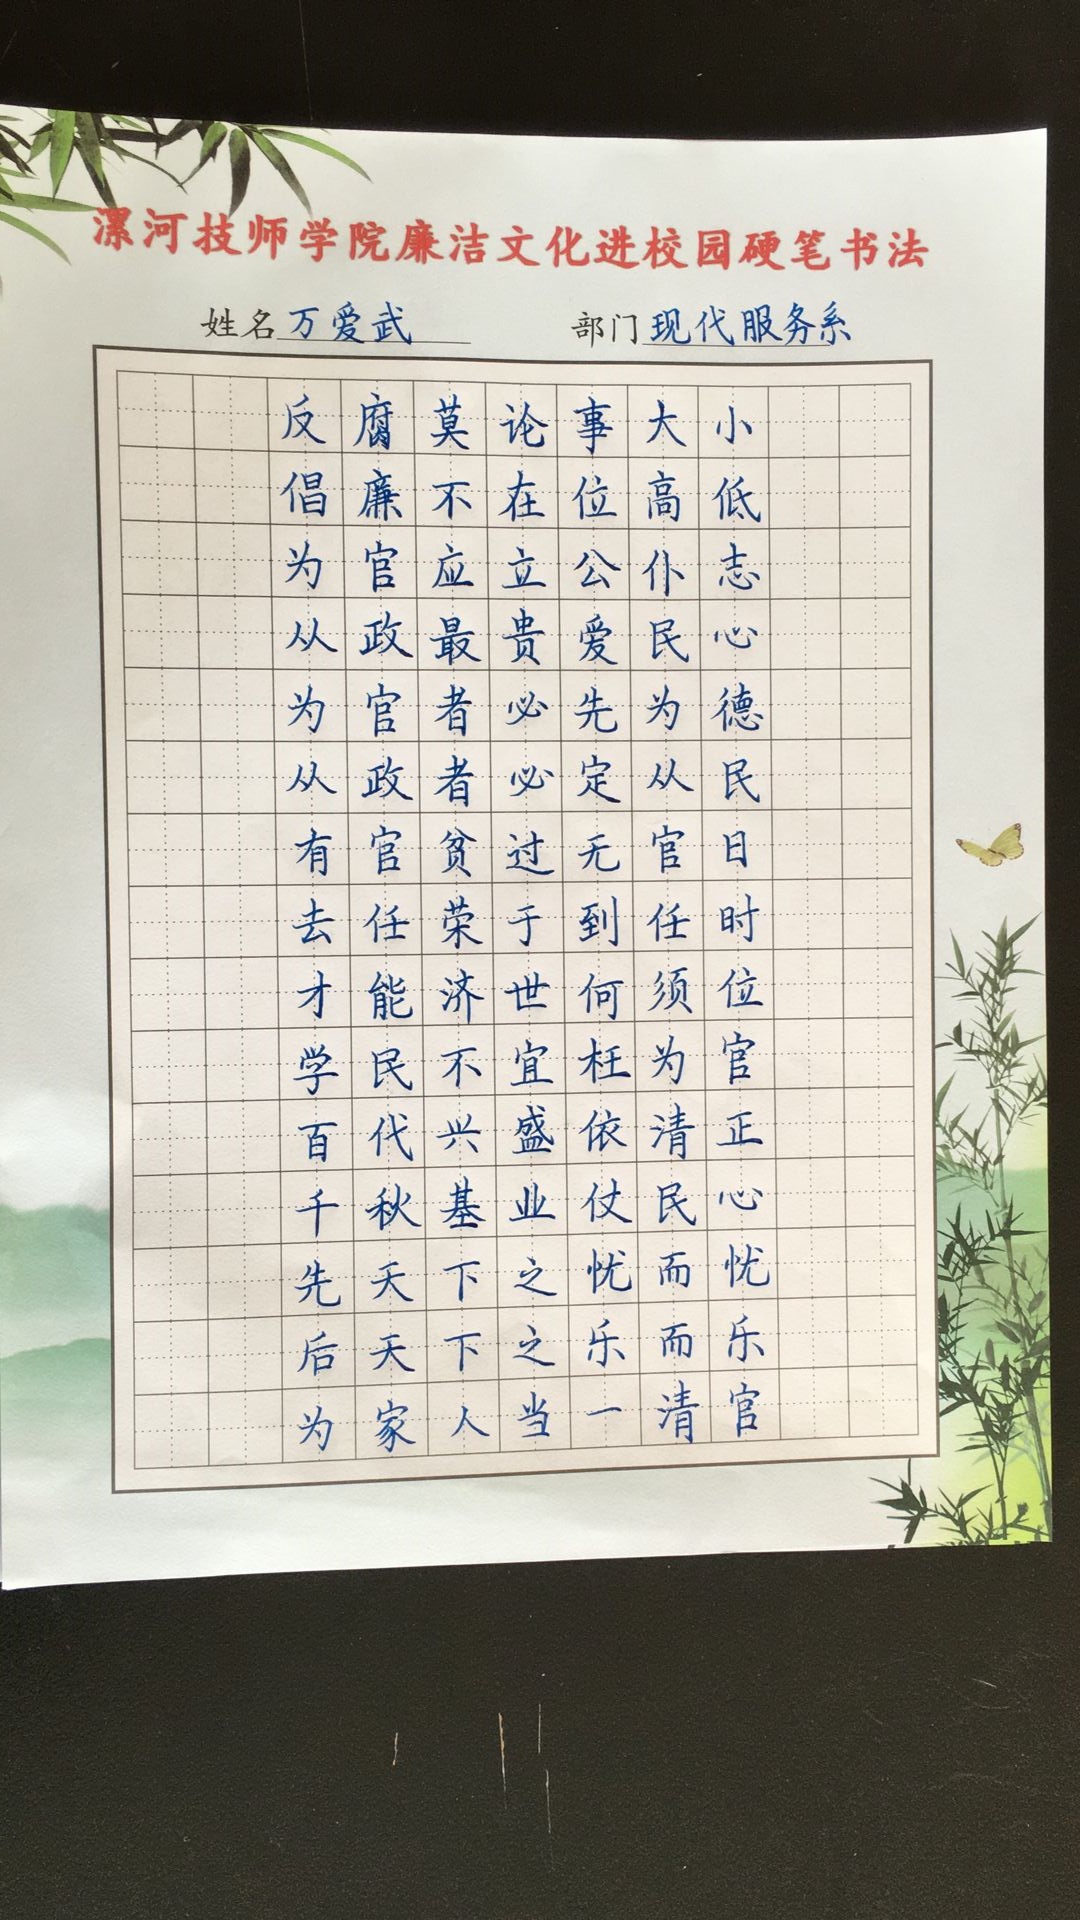 漯河技师学院廉洁文化进校园硬笔书法
姓名 万爱武 部门 现代服务系
反腐莫论事大小
倡廉不在位高低
为官应立公仆志
从政最贵爱民心
为官者必先为德
从政者必定从民
有官贫过无官日
去任荣于到任时
才能济世何须位
学民不宜枉为官
百代兴盛依清正
千秋基业仗民心
先天下之忧而忧
后天下之乐而乐
为家人当一清官